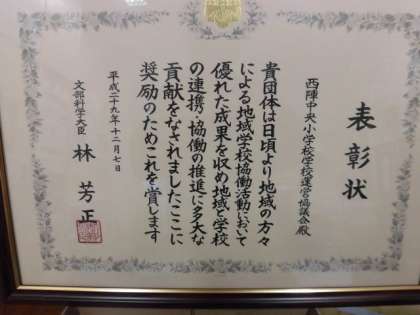 表彰状
西陣中央小学校学校運営協議会殿
貴団体は日頃より地域の方々
による地域学校協働活動において
優れた成果を収め地域と学校
の連携・協働の推進に多大な
貢献をなされましたここに
奨励のためこれを賞します
平成二十九年十二月七日
文部科学大臣 林 芳正